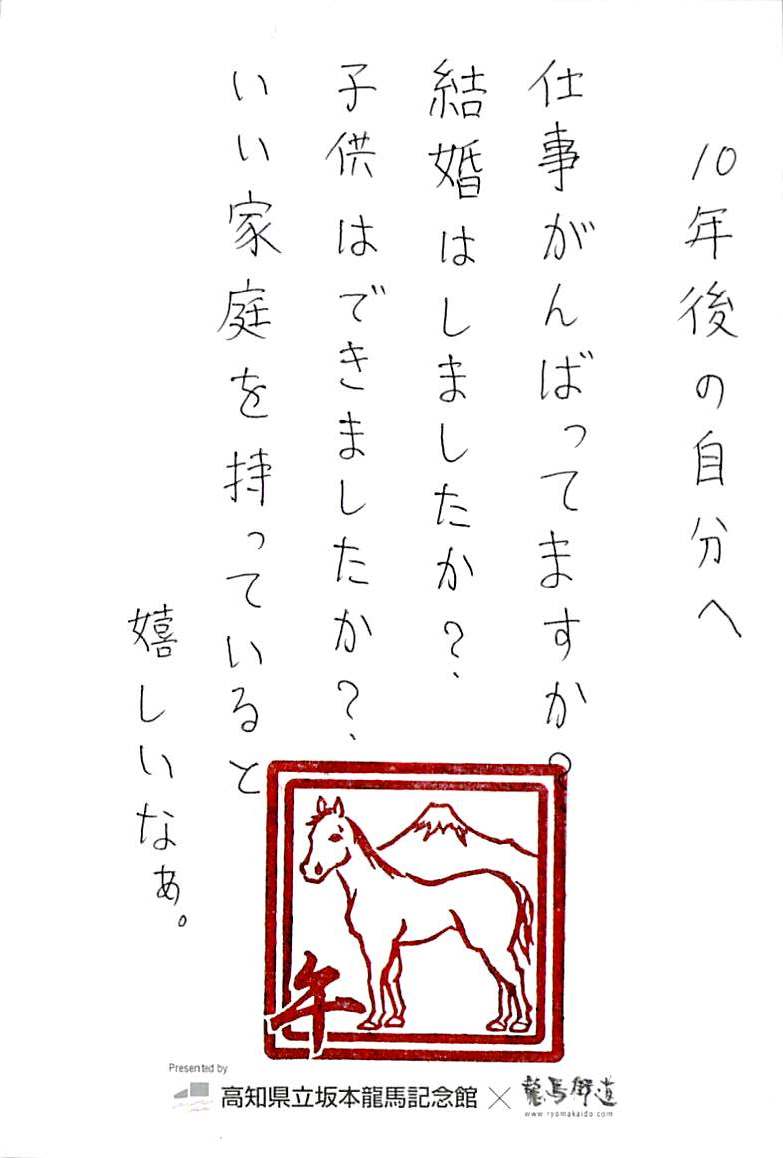 10年後の自分へ
仕事がんばってますか。
結婚はしましたか?
子供はできましたか?
いい家庭を持っていると
嬉しいなぁ。
午
Presented by
高知県立坂本龍馬記念館×龍馬街道
www.ryomakaido.com